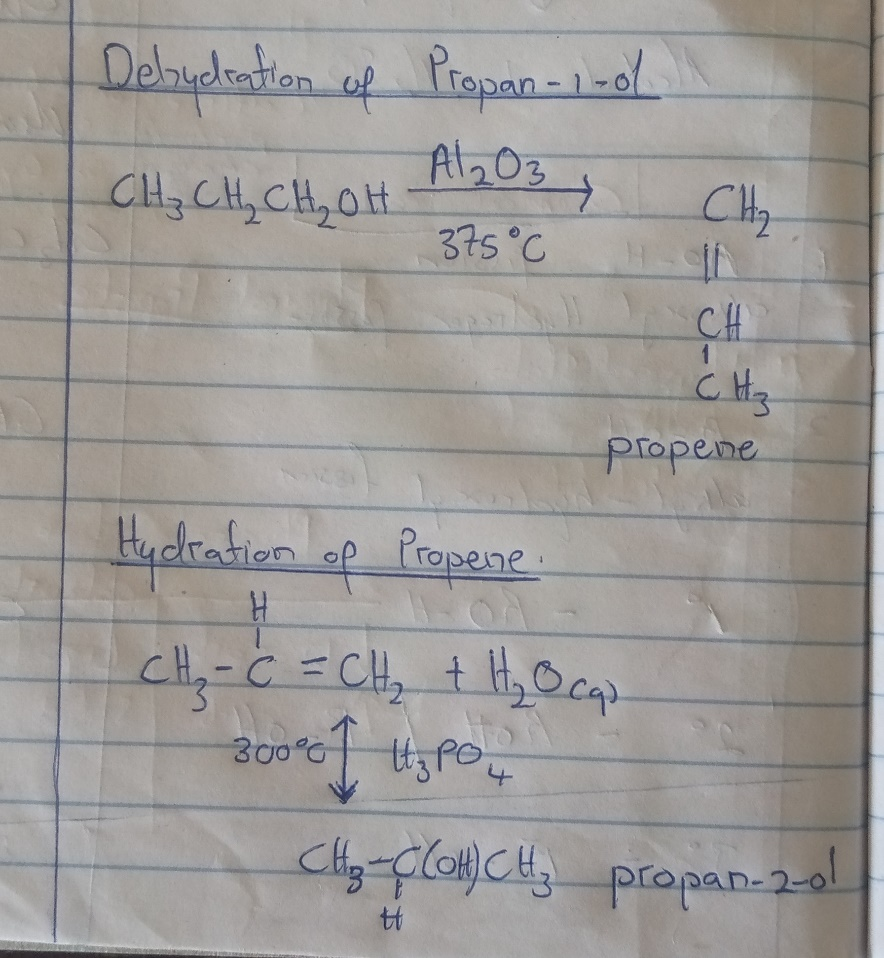 Dehydration of Propan-1-ol
CH₃CH₂CH₂OH Al₂O₃ → CH₂
375°C
||
CH
|
CH₃
propene
Hydration of Propene.
H
|
CH₃-C=CH₂ + H₂O(g)
300°C ↕ H₃PO₄
CH₃-C(OH)CH₃ propan-2-ol
|
H